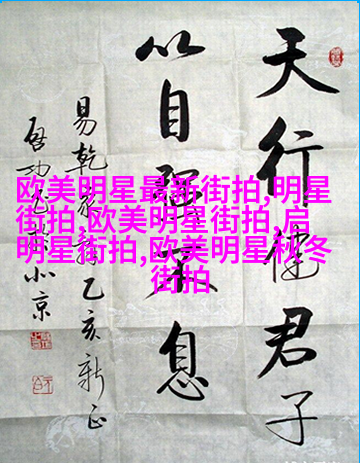 天行健君子
以自彊不息
易乾乙亥新正
启功北京
欧美明星最新街拍,明星
街拍,欧美明星街拍,启
明星街拍,欧美明星秋冬
街拍